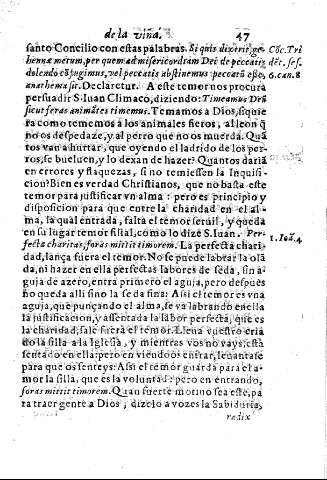 de la viña. 47
santo Concilio con estas palabras. Si quis dixerit ge- Cõc. Tri
hennæ metum, per quem ad misericordiam Dei de peccatis dẽt. ses.
dolendo cõfugimus, vel peccatis abstinemus peccatũ esse, 6. can. 8
anathema sit. Declaretur. A este temor nos procura
persuadir S. Iuan Climaco, diziendo: Timeamus Dñ
sicut feras animãtes timemus. Temamos a Dios, siquie
ra como tememos a los animales fieros, al leon q̃
no os despedaze, y al perro que no os muerda. Quã
tos van a hurtar, que oyendo el ladrido de los per-
ros, se bueluen, y lo dexan de hazer? Quantos dariã
en errores y flaquezas, si no temiessen la Inquisi-
cion? Bien es verdad Christianos, que no basta este
temor para justificar vn alma: pero es principio y
disposicion para que entre la charidad en el al-
ma, la qual entrada, salta el temor seruil, y queda
en su lugar temor filial, como lo dize S. Iuan. Per-
fecta charitas, foras mittit timorem. La perfecta chari- 1. Ioã. 4
dad, lança fuera el temor. No se puede labrar la olã
da, ni hazer en ella perfectas labores de seda, sin a-
guja de azero, entra primero el aguja, pero despues
no queda alli sino la seda fina: Assi el temor es vna
aguja, que punçando el alma, se va labrando en ella
la justificacion, y assentada la labor perfecta, que es
la charidad, sale fuera el temor. Llena vuestro cria
do la silla a la Iglesia, y mientras vos no vays, està
sentado en ella: pero en viendoos entrar, leuantase
para que os senteys: Assi el temor guarda para el a-
mor la silla, que es la voluntad: pero en entrando,
foras mittit timorem. Quan fuerte motiuo sea este, pa
ra traer gente a Dios, dizelo a vozes la Sabiduria,
radix